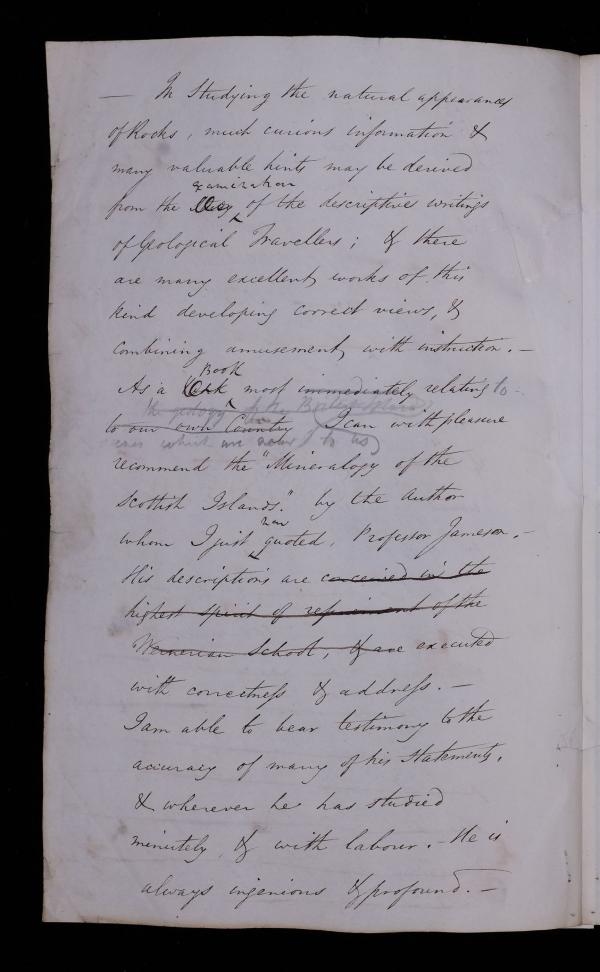 — In Studying the natural appearances
of Rocks, much curious information &
many valuable hints may be derived
examination
from the of the descriptive writings
of Geological Travellers; & there
are many excellent works of this
kind developing correct views, &
combining amusement, with instruction. —
Book
As a Work most immediately relating to
the geology of the British Islands
to our own Country I can with pleasure
which are to us
recommend the "Mineralogy of the
Scottish Islands." by the Author
whom I just quoted, Professor Jameson. —
His descriptions are conceived in the
highest spirit of refinement of the
Wernerian School, & are executed
with correctness & address. —
I am able to bear testimony to the
accuracy of many of his Statements,
& wherever he has studied
minutely, & with labour. — He is
always ingenious & profound. —